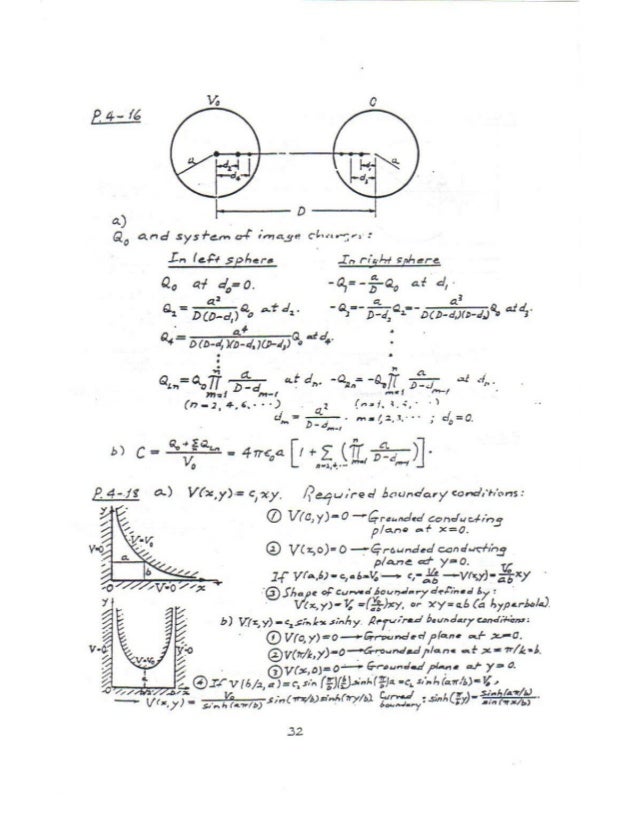 P.4-16
V₀ 0
a d₂ d₄ d₁ d₃ a
D
a)
Q₀ and system of image charges:
In left sphere In right sphere
Q₀ at d₀=0. -Q₁=-a/D Q₀ at d₁.
Q₂ = a²/D(D-d₁) Q₀ at d₂. -Q₃=-a/D-d₂ Q₂=-a³/D(D-d₁)(D-d₂) Q₀ at d₃.
Q₄= a⁴/D(D-d₁)(D-d₂)(D-d₃) Q₀ at d₄.
⋮ ⋮
Q₂ₙ=Q₀ ∏ₘ₌₁ⁿ a/D-dₘ₋₁ at dₙ. -Q₂ₙ=-Q₀ ∏ₘ₌₁ⁿ a/D-dₘ₋₁ at dₙ.
(n=2,4,6,⋯) (n=1,3,5,⋯)
dₘ = a²/D-dₘ₋₁. m=1,2,3,⋯ ; d₀=0.
b) C = Q₀+ΣQ₂ₙ/V₀ = 4πϵ₀a [1+ Σₙ₌₂,₄,⋯ (∏ₘ₌₁ⁿ a/D-dₘ₋₁)].
P.4-18 a) V(x,y)= c₁xy. Required boundary conditions:
① V(0,y)=0 → Grounded conducting
plane at x=0.
② V(x,0)=0 → Grounded conducting
plane at y=0.
If V(a,b)=c₁ab=V₀ → c₁=V₀/ab → V(x,y)=V₀/ab xy
③ Shape of curved boundary defined by:
V(x,y)=V₀=(V₀/ab)xy, or xy=ab (a hyperbola).
y V=0 V=V₀ a b 0 V=0 x
b) V(x,y)=c₂ sinkx sinhy. Required boundary conditions:
① V(0,y)=0 → Grounded plane at x=0.
② V(π/k,y)=0 → Grounded plane at x=π/k=b.
③ V(x,0)=0 → Grounded plane at y=0.
y V=0 V=V₀ V=0 a 0 b/2 b x
④ If V(b/2,a)=c₂ sin(π/b)(b/2) sinh(π/b)a=c₂ sinh(aπ/b)=V₀,
→ V(x,y)= V₀/sinh(aπ/b) sin(πx/b) sinh(πy/b). Curved boundary: sinh(π/b y)= sinh(aπ/b)/sin(πx/b).
32